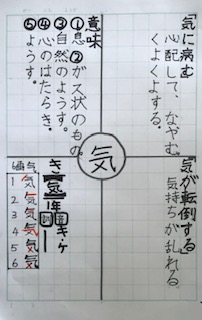 「気に病む」
心配して、なやむ。
くよくよする。
「気が転倒する」
気持ちが乱れる
意味
①息②ガス状のもの。
③自然のようす。
④心のはたらき・
⑤ようす。
気
き 气 1年
音 キ・ケ
訓 ー
1 気
2 気
3 気
4 気
5 気
6 気